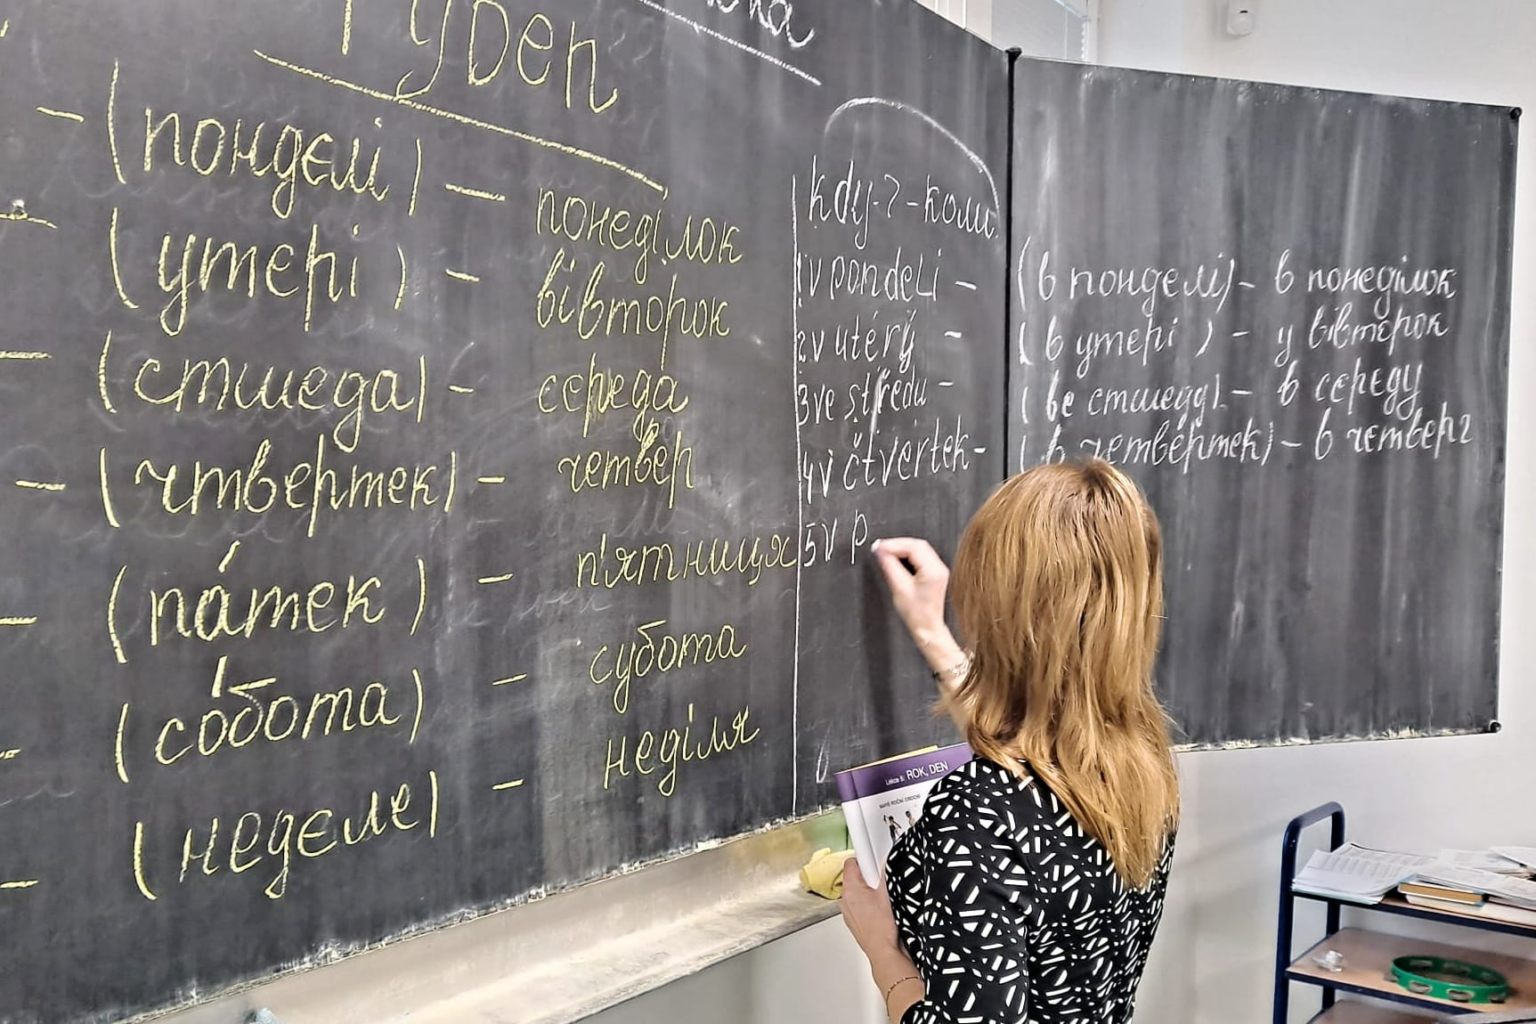 Týden
– (пондєлі) — понеділок
– (утері) – вівторок
– (стшеда) – середа
– (чтвертек) – четвер
– (па́тек) – п'ятниця
– (со́бота) – субота
– (неделе) – неділя
kdy-? - коли
1 v pondeli –
2 v utérý –
3 ve středu –
4 v čtvertek-
5 v p
(в понделі) – в понеділок
(в утері) – у вівторок
(ве стшеду) – в середу
(в четвертек) – в четверг
Lekce 8: ROK, DEN